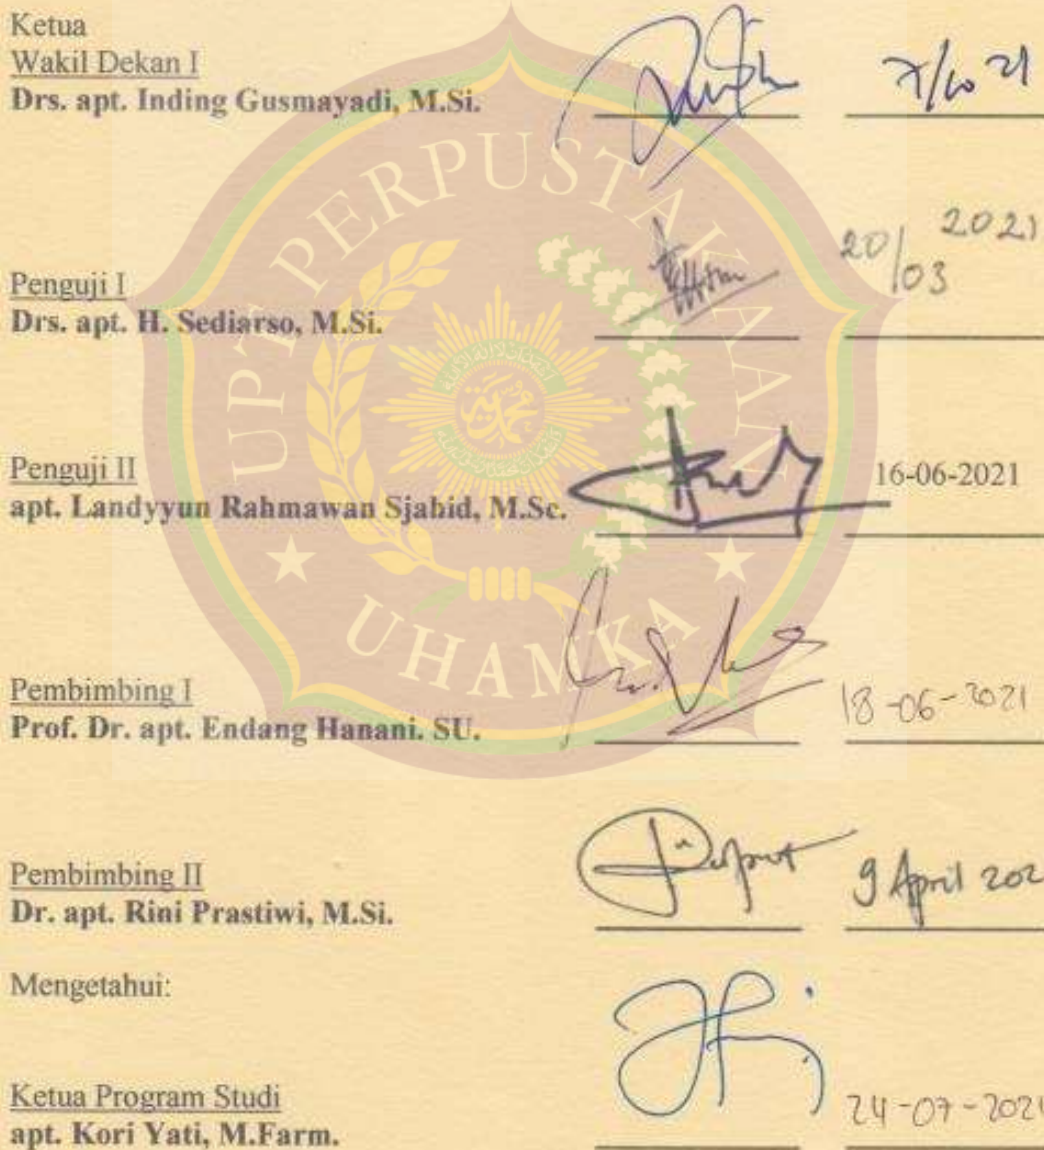 Ketua
Wakil Dekan I
Drs. apt. Inding Gusmayadi, M.Si.
7/10 21
Penguji I
Drs. apt. H. Sediarso, M.Si.
20/03 2021
Penguji II
apt. Landyyun Rahmawan Sjahid, M.Sc.
16-06-2021
Pembimbing I
Prof. Dr. apt. Endang Hanani. SU.
18-06-2021
Pembimbing II
Dr. apt. Rini Prastiwi, M.Si.
9 April 202
Mengetahui:
Ketua Program Studi
apt. Kori Yati, M.Farm.
24-07-2021
UPT PERPUSTAKAAN
UHAMKA